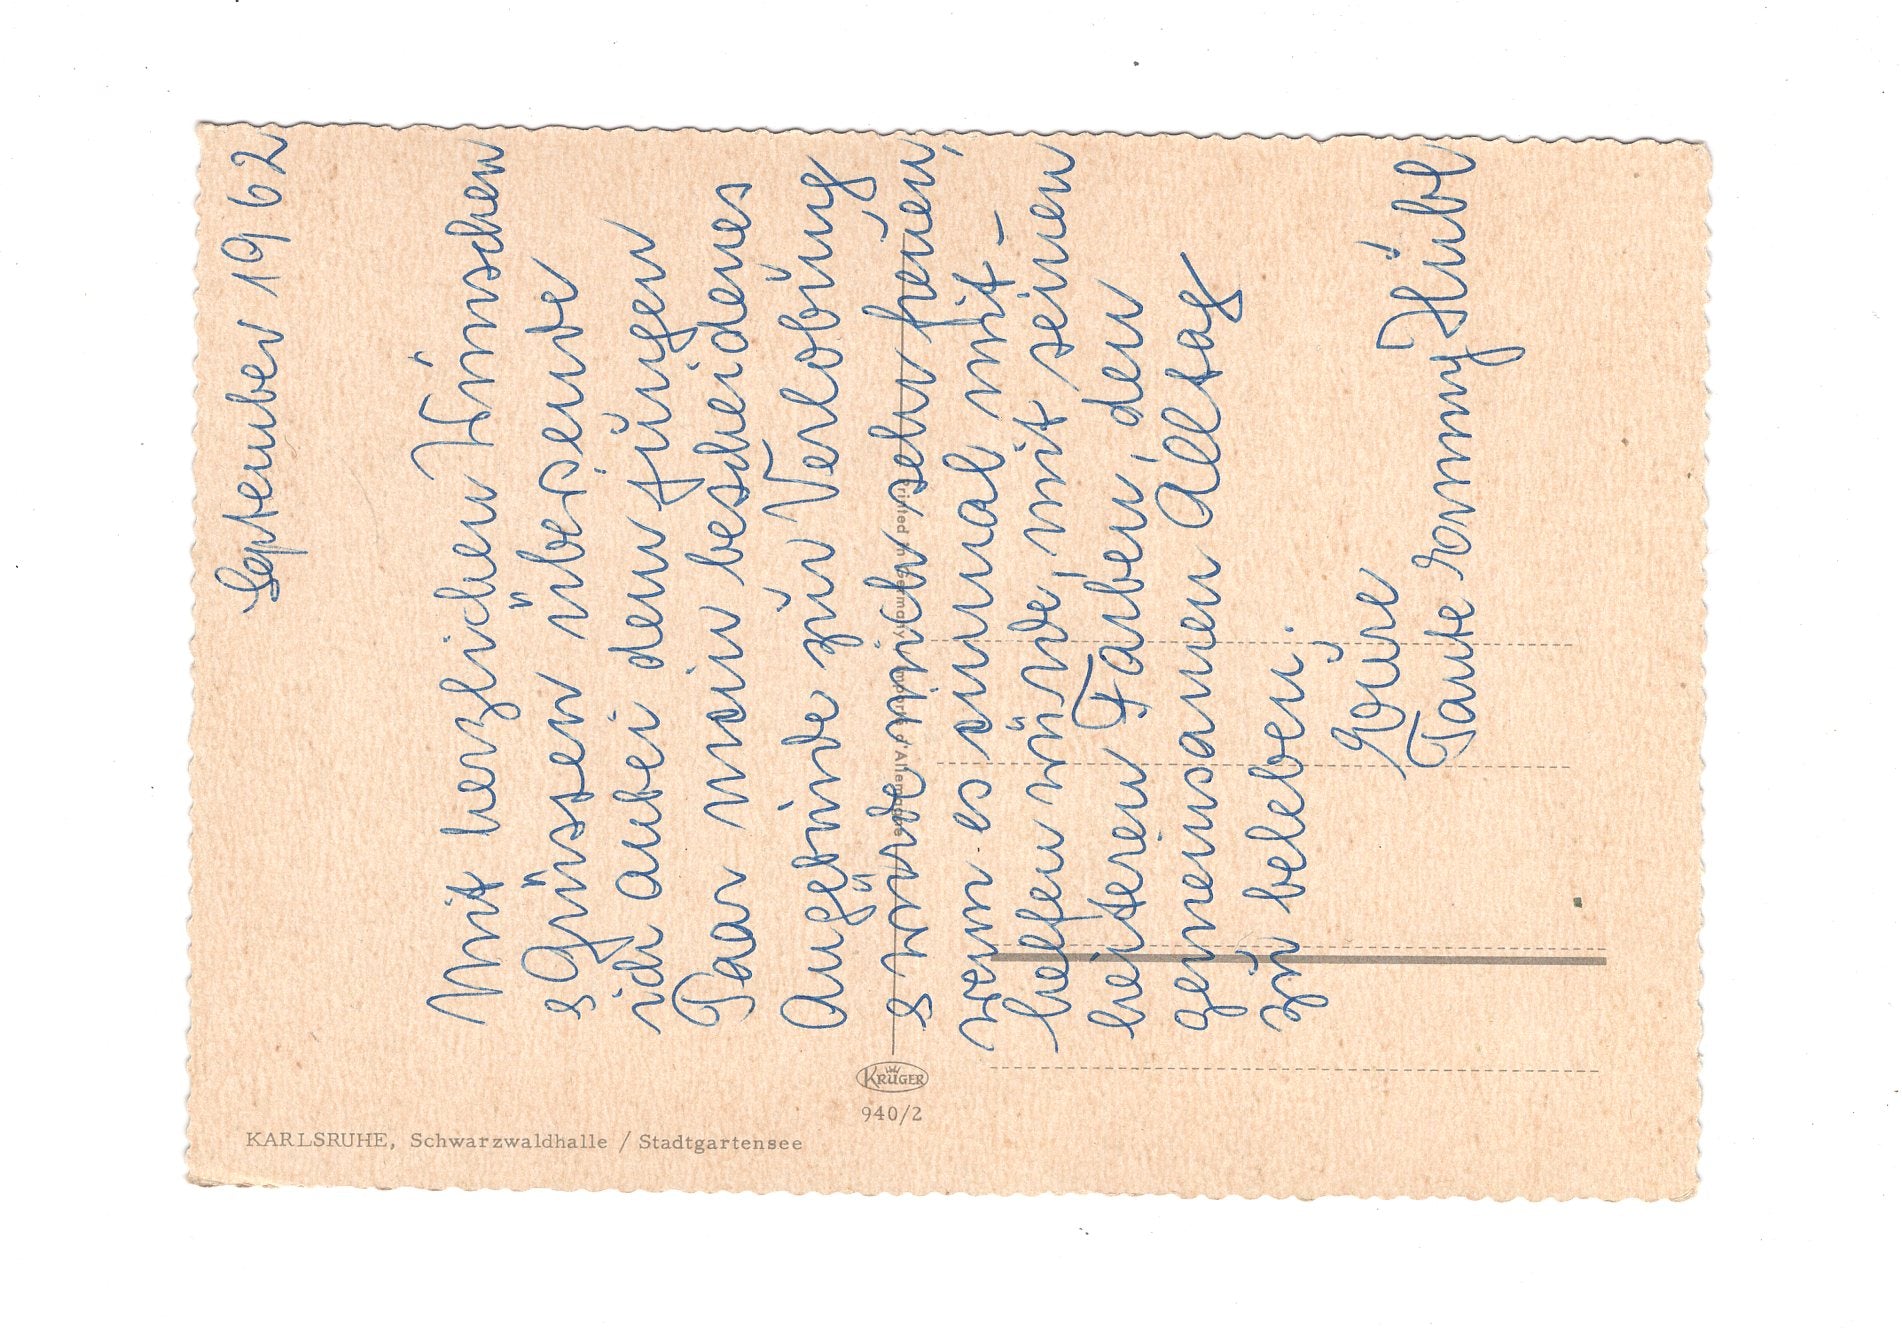 September 1962
Mit herzlichen Wünschen
& Grüssen übersende
ich anbei dem jungen
Paar mein bescheidenes
Angebinde zur Verlobung
& würde mich sehr freuen,
wenn es einmal mit-
helfen würde, mit seinen
heiteren Farben, den
gemeinsamen Alltag
zu beleben.
Eure
Tante Emmy Hübl
Printed in Germany Importé d'Allemagne
KRÜGER
940/2
KARLSRUHE, Schwarzwaldhalle / Stadtgartensee